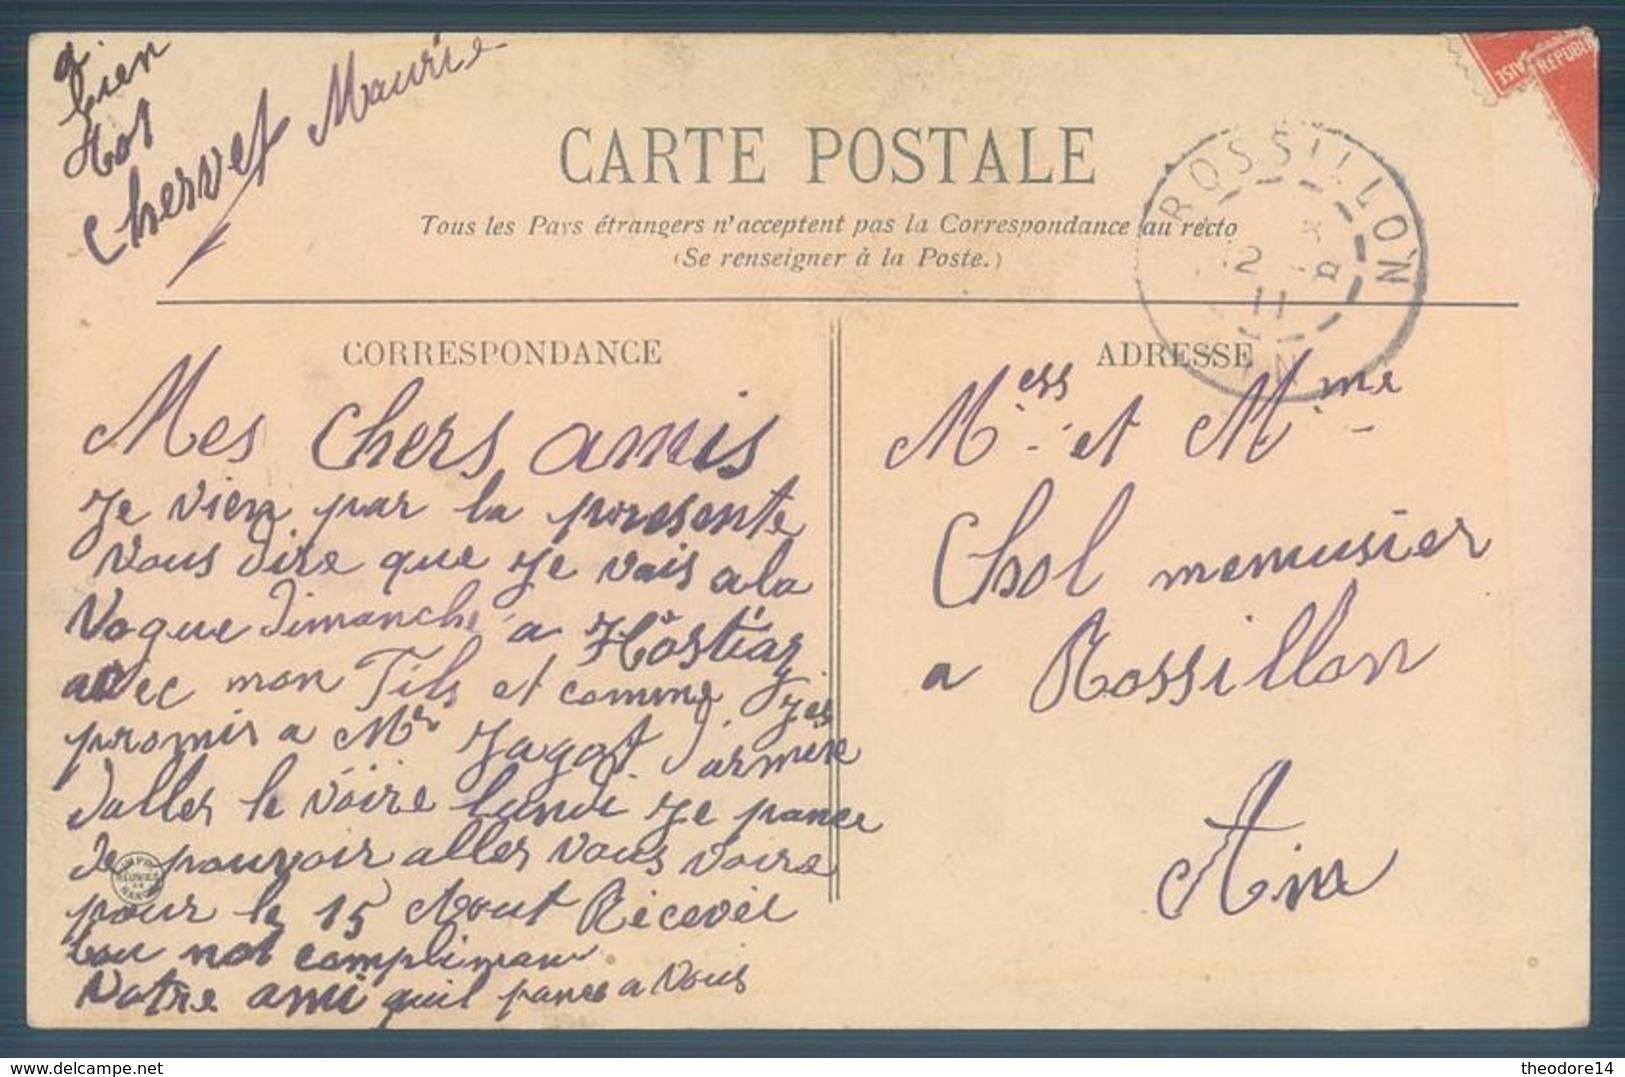 a
bien
tot
Chervet Maurie
CARTE POSTALE
Tous les Pays étrangers n'acceptent pas la Correspondance au recto
(Se renseigner à la Poste.)
ROSSILLON
12
11
AIN
RÉPUBL
AISE
CORRESPONDANCE
Mes Chers amis
Je vien par la presente
Vous dire que Je vais a la
Vogue dimanche a Hostiaz
avec mon Fils et comme Jes
promis a Mr Jagot d'armère
daller le voire lundi Je pance
de pouvoir aller vous voire
pour le 15 Aout Recevel
tou not compliman
Votre ami quil pance a Vous
ADRESSE
Mess et Mme
Chol menusier
a Rossillon
Ain
delcampe.net
theodore14